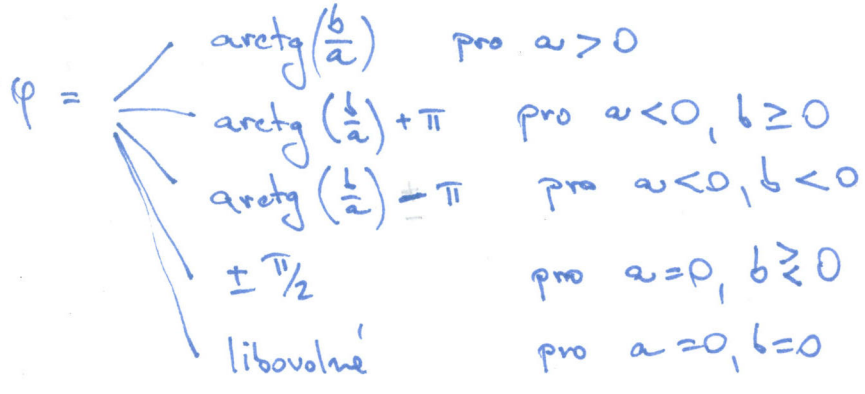 arctg(b/a) pro a > 0
φ = arctg(b/a) + π pro a < 0, b ≥ 0
arctg(b/a) - π pro a < 0, b < 0
± π/2 pro a = 0, b ≷ 0
libovolné pro a = 0, b = 0